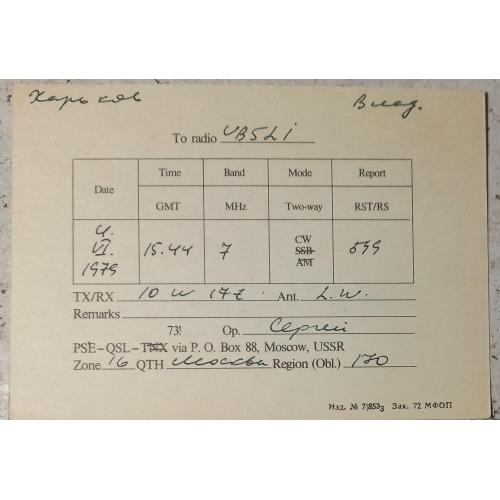 Харьков Влад.
To radio UB5LI
Date Time Band Mode Report
GMT MHz Two-way RST/RS
4. VI. 1979 15.44 7 CW SSB AM 599
TX/RX 10 W Ant. L.W.
Remarks
73! Op. Сергей
PSE–QSL–TNX via P. O. Box 88, Moscow, USSR
Zone 16 QTH Москва Region (Obl.) 170
Изд. № 7|853з Зак. 72 МФОП